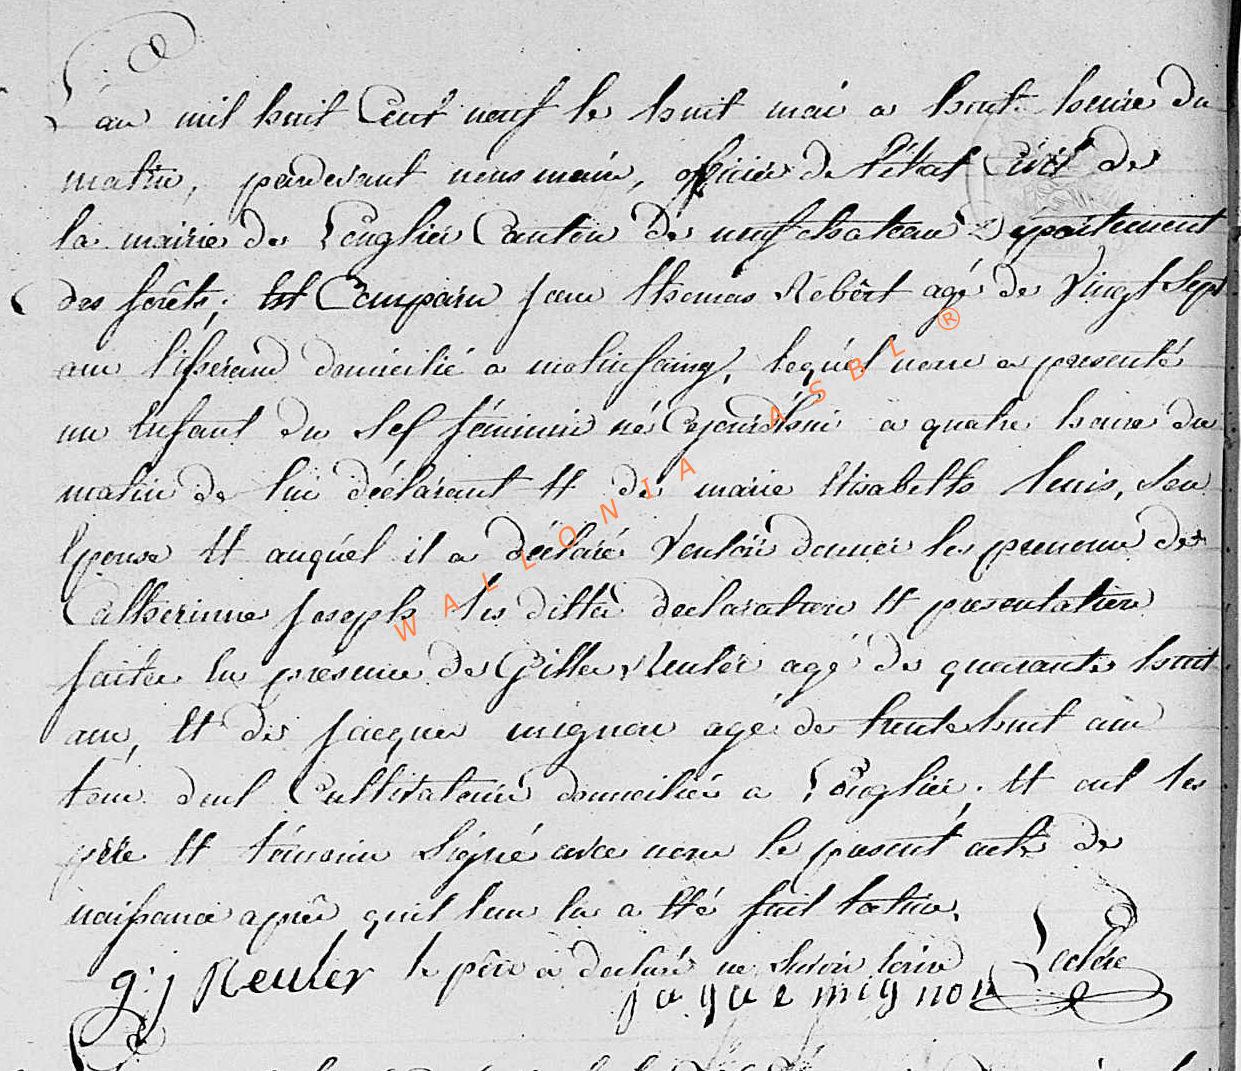 L'an mil huit Cent neuf le huit mai a huit heure du
matin, pardevant nous maire, officier de l'état Civil de
la mairie de Longlier Canton de neufchateau Département
des forêts; Est Comparu jean thomas Robert agé de Vingt Sept
ans tisserand domicilié a molinfaing, lequel nous a presenté
un Enfant du Sex féminin né Cejourdhui a quatre heure du
matin de lui déclarant Et de marie Elisabeth Louis, Son
Epouse Et auquel il a déclaré Vouloir donner les prenoms de
Catherinne Joseph les dittes declaration Et presentation
faites En présence de Gille Reuler agé de quarante huit
ans, Et de jacque mignon agé de trente huit ans
tous deux Cultivateurs domiciliés a Longlier; Et ont les
père Et témoins Signé avec nous le present acte de
naissance après qu'il leur En a Eté fait lecture.
le père a declaré ne Savoir Ecrire
g: j Reuler
jaque mignon